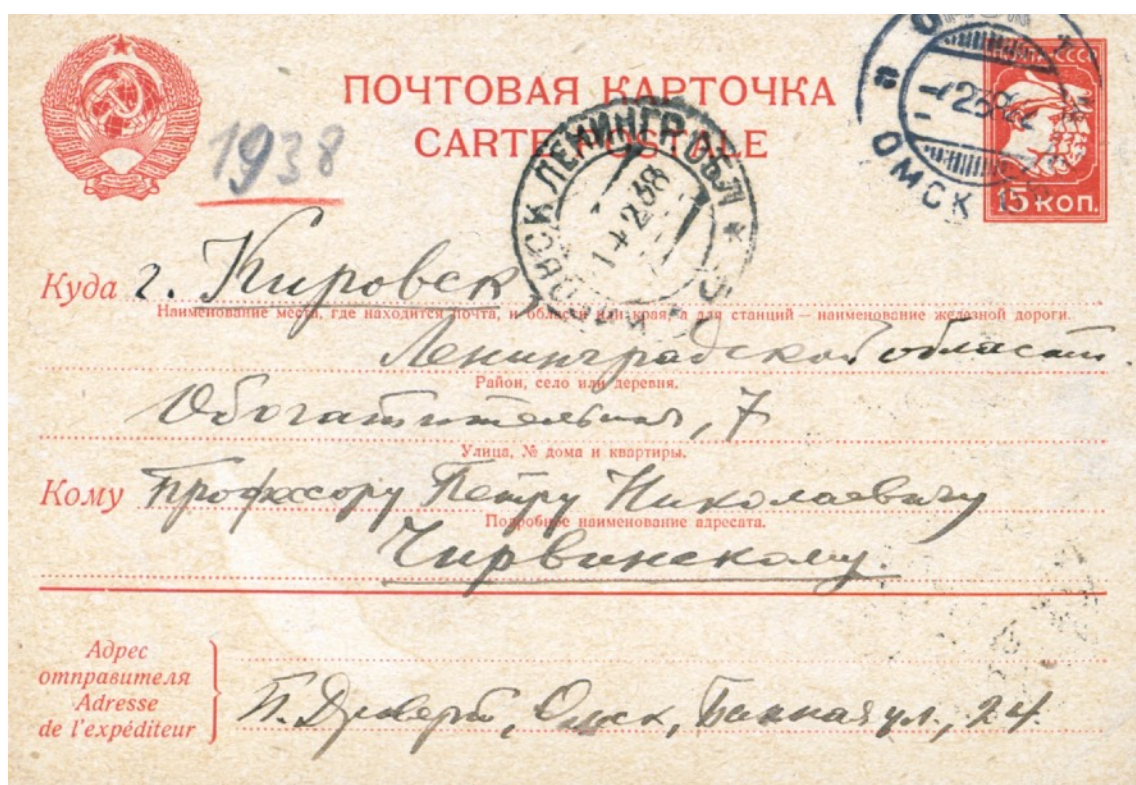 ПОЧТОВАЯ КАРТОЧКА
CARTE POSTALE
1938
ПОЧТА СССР
15 КОП.
ОМСК
ОМСК
КИРОВСК ЛЕНИНГР. ОБЛ.
14 2 38
Куда г. Кировск
Наименование места, где находится почта, и области или края, а для станций — наименование железной дороги.
Ленинградской области.
Район, село или деревня.
Обогатительная, 7
Улица, № дома и квартиры.
Кому Профессору Петру Николаевичу
Подробное наименование адресата.
Чирвинскому.
Адрес
отправителя
Adresse
de l'expéditeur
П. Драверт, Омск, Банная ул., 24.